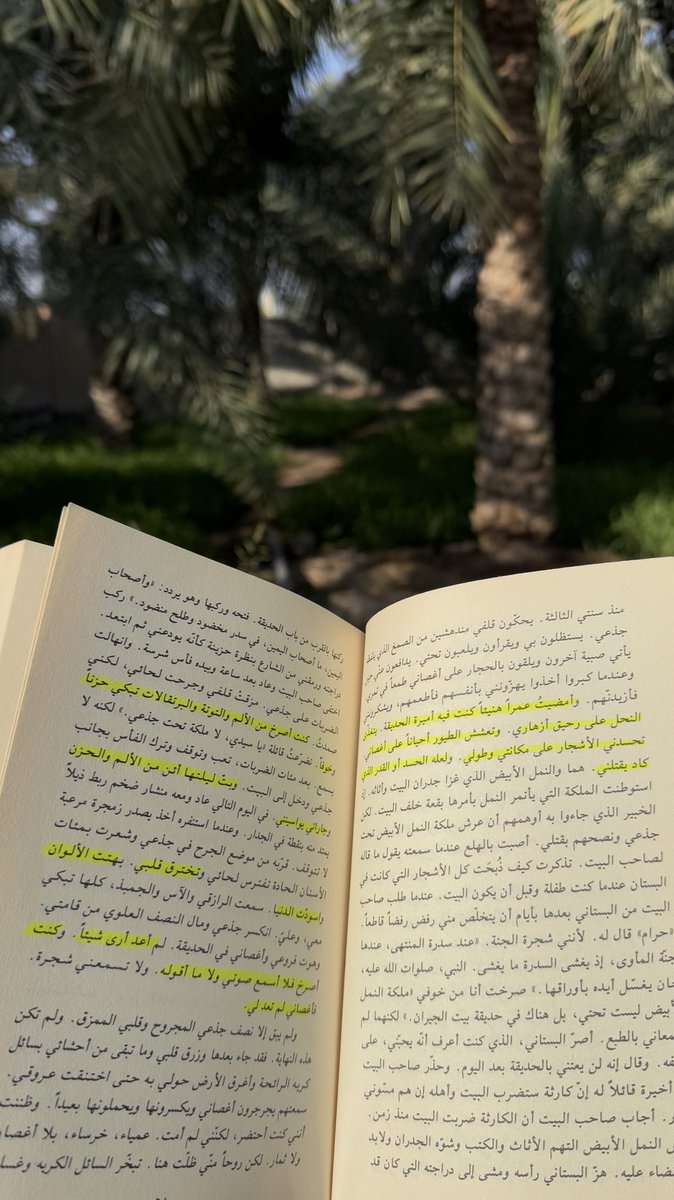 منذ سنتي الثالثة. يحكّون قلفي مندهشين من الصمغ الذي يغلف
جذعي. يستظلون بي ويقرأون ويلعبون تحتي. يدافعون عنّي حين
يأتي صبية آخرون ويلقون بالحجار على أغصاني طمعاً في ثمري
وعندما كبروا أخذوا يهزّونني بأنفسهم فأطعمهم، ويشكرونني
فأزيدنّهم. وأمضيتُ عمراً هنيئاً كنت فيه أميرة الحديقة. يتغذى
النحل على رحيق أزهاري. وتعشش الطيور أحياناً على أغصاني
تحسدني الأشجار على مكانتي وطولي. ولعله الحسد أو القدر الذي
كاد يقتلني. هما والنمل الأبيض الذي غزا جدران البيت وأثاثه. إذ
استوطنت الملكة التي يأتمر النمل بأمرها بقعة خلف البيت. لكن
الخبير الذي جاءوا به أوهمهم أن عرش ملكة النمل الأبيض تحت
جذعي ونصحهم بقتلي. أصبت بالهلع عندما سمعته يقول ما قاله
لصاحب البيت. تذكرت كيف ذُبحَت كل الأشجار التي كانت في
البستان عندما كنت طفلة وقبل أن يكون البيت. عندما طلب صاحب
البيت من البستاني بعدها بأيام أن يتخلّص مني رفض رفضاً قاطعاً.
«حرام» قال له. لأنني شجرة الجنة. «عند سدرة المنتهى، عندها
جنّة المأوى، إذ يغشى السدرة ما يغشى. النبي، صلوات الله عليه،
كان يغسّل أيده بأوراقها.» صرخت أنا من خوفي «ملكة النمل
الأبيض ليست تحتي، بل هناك في حديقة بيت الجيران.» لكنهما لم
يسمعاني بالطبع. أصرّ البستاني، الذي كنت أعرف أنّه يحبّني، على
وقال إنه لن يعتني بالحديقة بعد اليوم. وحذّر صاحب البيت
أخيرة قائلاً له إنّ كارثة ستضرب البيت وأهله إن هم مسّوني
أجاب صاحب البيت أن الكارثة ضربت البيت منذ زمن.
النمل الأبيض التهم الأثاث والكتب وشوّه الجدران ولابد
عليه. هزّ البستاني رأسه ومشى إلى دراجته التي كان قد
ركنها بالقرب من باب الحديقة. فتحه وركبها وهو يردد: «وأصحاب
اليمين، ما أصحاب اليمين، في سدر مخضود وطلح منضود.» ركب
دراجته ورمقني من الشارع بنظرة حزينة كأنّه يودعني ثم ابتعد.
اختفى صاحب البيت وعاد بعد ساعة وبيده فأس شرسة. وانهالت
الضربات على جذعي. مزقتْ قلفي وجرحت لحائي، لكنني
صمدتُ. كنت أصرخ من الألم والتوتة والبرتقالات تبكي حزناً
وخوفاً. تضرّعتُ قائلة «يا سيدي، لا ملكة تحت جذعي.» لكنه لا
يسمع. بعد مئات الضربات، تعب وتوقف وترك الفأس بجانب
جذعي ودخل إلى البيت. وبتّ ليلتها أئن من الألم والحزن
وجاراتي يواسينني. في اليوم التالي عاد ومعه منشار ضخم ربط ذيلاً
يمتد منه بنقطة في الجدار. وعندما استنفره أخذ يصدر زمجرة مرعبة
لا تتوقف. قرّبه من موضع الجرح في جذعي وشعرت بمئات
الأسنان الحادة تفترس لحائي وتخترق قلبي. بهتت الألوان
واسودّت الدنيا. سمعت الرازقي والآس والجمبذ، كلها تبكي
معي، وعليّ. انكسر جذعي ومال النصف العلوي من قامتي.
وهوت فروعي وأغصاني في الحديقة. لم أعد أرى شيئاً. وكنت
أصرخ فلا أسمع صوتي ولا ما أقوله. ولا تسمعني شجرة.
فأغصاني لم تعد لي.
ولم يبق إلا نصف جذعي المجروح وقلبي الممزق. ولم تكن
هذه النهاية. فقد جاء بعدها وزرق قلبي وما تبقى من أحشائي بسائل
كريه الرائحة وأغرق الأرض حولي به حتى اختنقت عروقي.
سمعتهم يجرجرون أغصاني ويكسرونها ويحملونها بعيداً. وظننت
أنني كنت أحتضر، لكنّني لم أمت. عمياء، خرساء، بلا أغصان
ولا ثمار. لكن روحاً منّي ظلّت هنا. تبخّر السائل الكريه